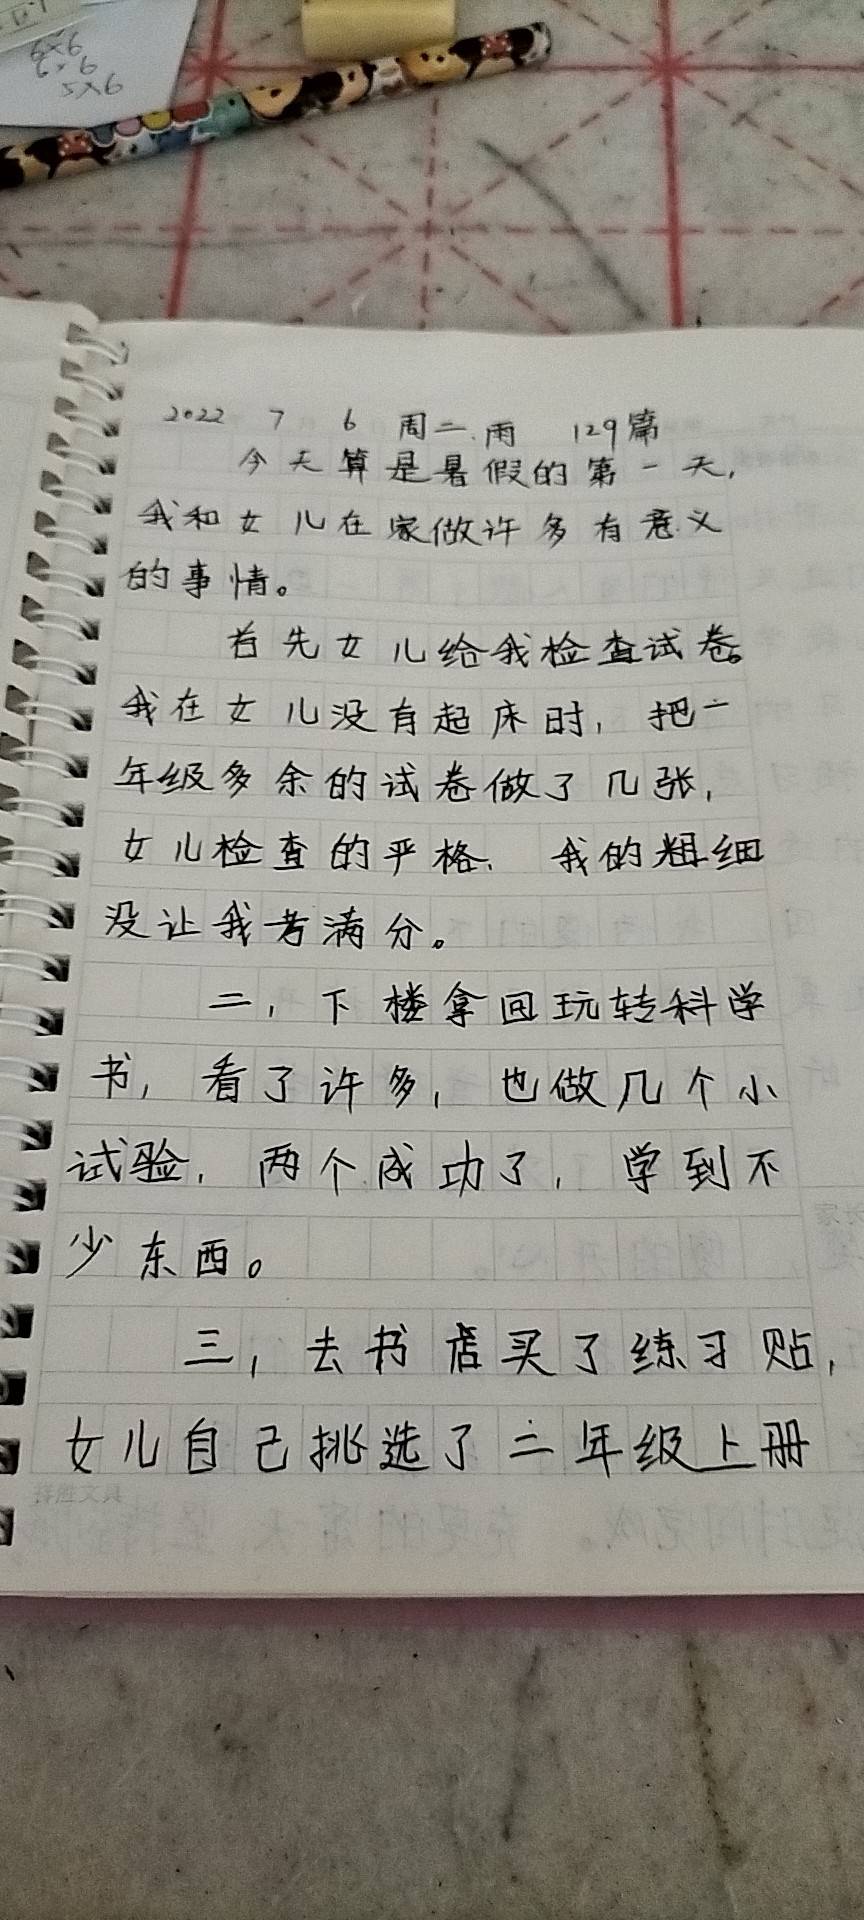 6×6
6×6
5×6
2022 7 6 周二.雨 129篇
今天算是暑假的第一天,
我和女儿在家做许多有意义
的事情。
首先女儿给我检查试卷。
我在女儿没有起床时,把一
年级多余的试卷做了几张,
女儿检查的严格、我的粗细
没让我考满分。
二,下楼拿回玩转科学
书,看了许多,也做几个小
试验,两个成功了,学到不
少东西。
三,去书店买了练习贴,
女儿自己挑选了二年级上册
家长
祥胜文具